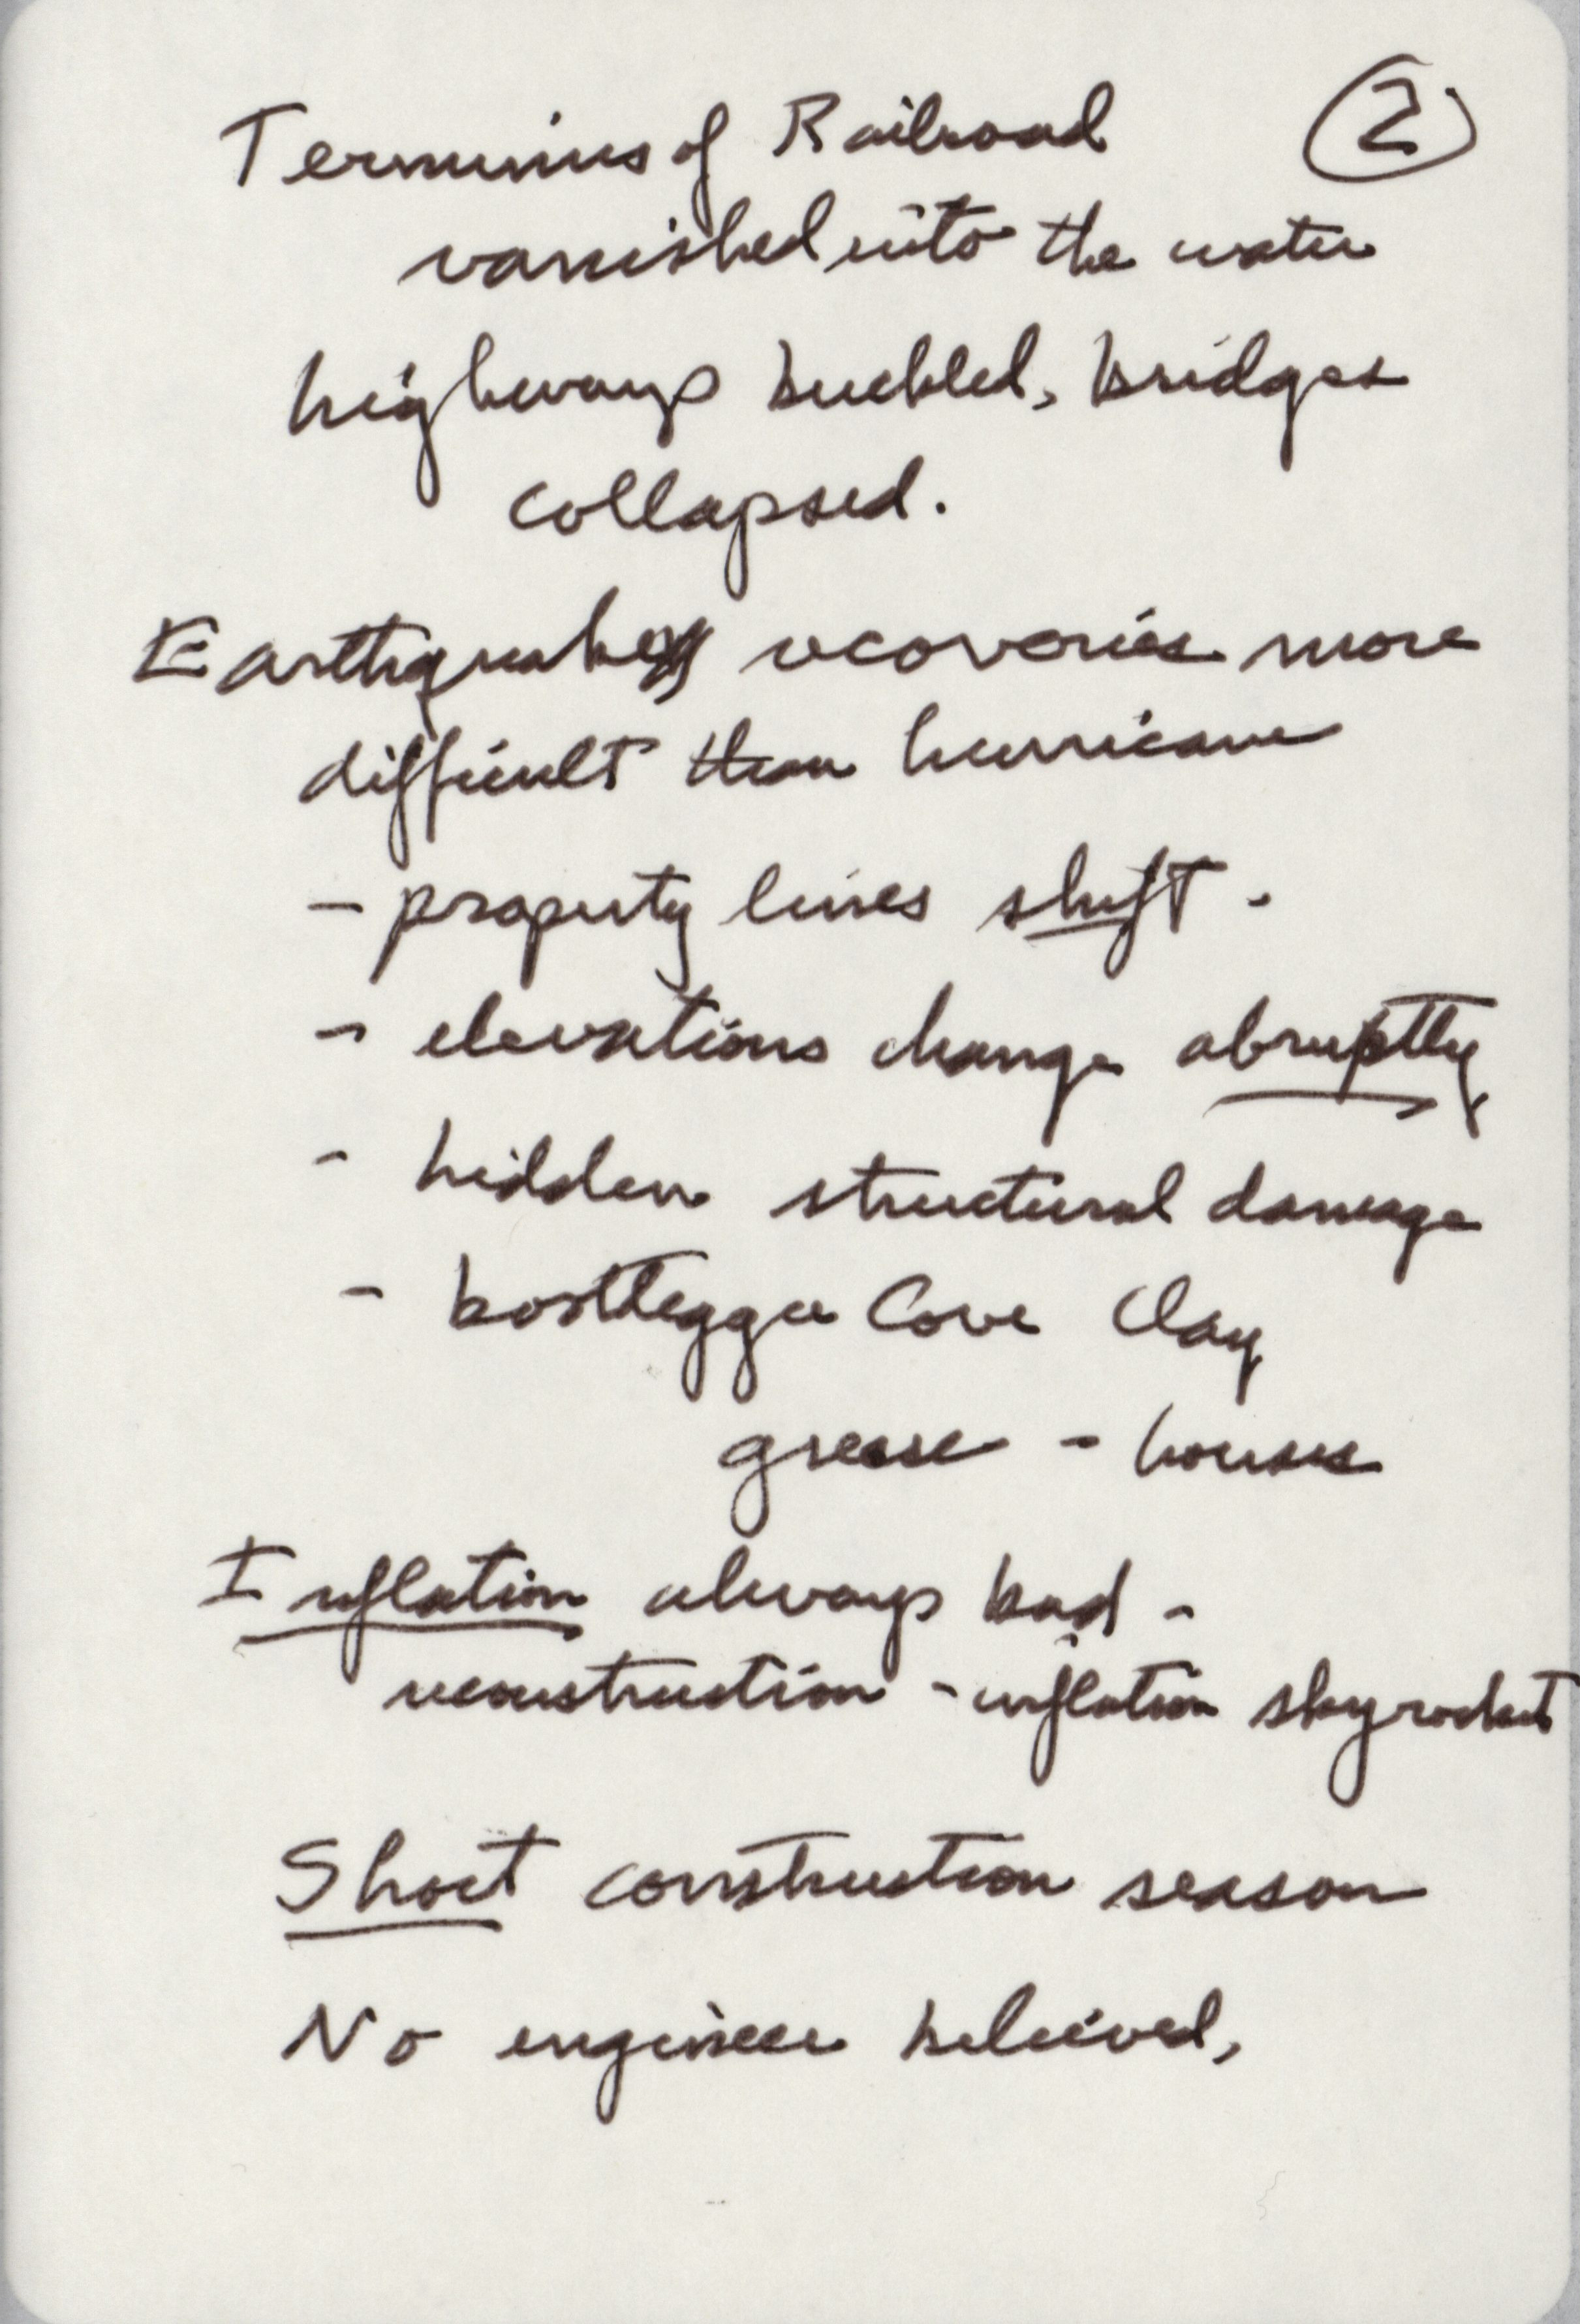 Terminus of Railroad
②
vanished into the water
highways buckled, bridges
collapsed.
Earthquake recoveries more
difficult than hurricane
- property lines shift.
- elevations change abruptly
- hidden structural damage
- bootlegger Cove Clay
grease - houses
Inflation always bad -
reconstruction - inflation skyrocket
Short construction season
No engineer believed,